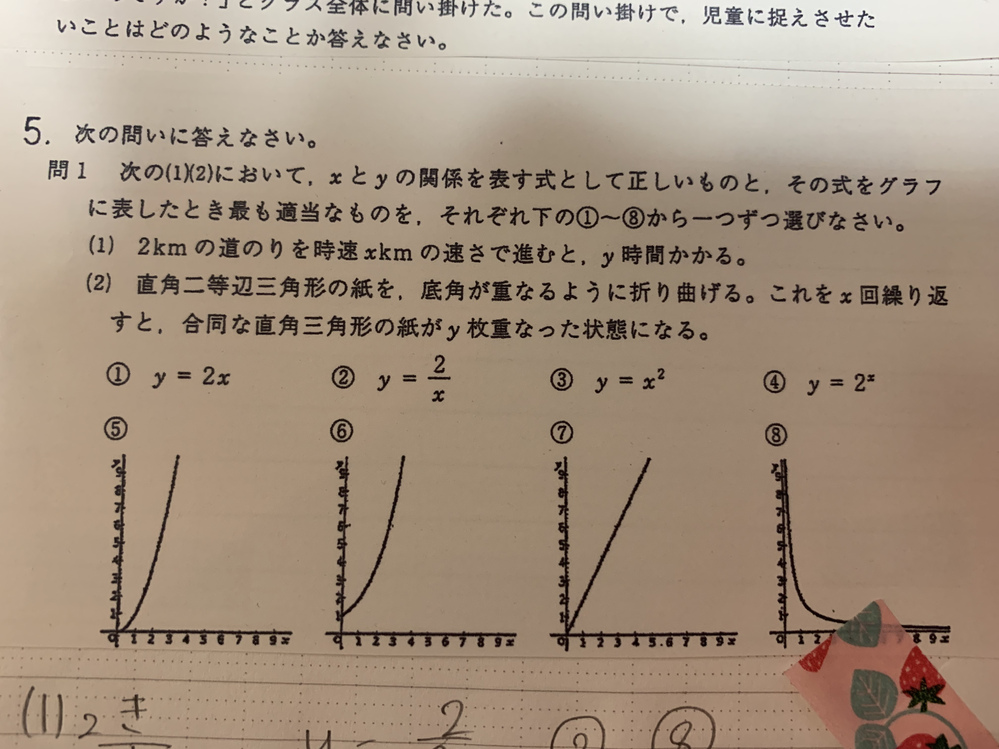 ？」とクラス全体に問い掛けた。この問い掛けで，児童に捉えさせた
いことはどのようなことか答えなさい。
5. 次の問いに答えなさい。
問1 次の(1)(2)において，xとyの関係を表す式として正しいものと，その式をグラフ
に表したとき最も適当なものを，それぞれ下の①～⑧から一つずつ選びなさい。
(1) 2kmの道のりを時速xkmの速さで進むと，y時間かかる。
(2) 直角二等辺三角形の紙を，底角が重なるように折り曲げる。これをx回繰り返
すと，合同な直角三角形の紙がy枚重なった状態になる。
① y = 2x ② y = 2/x ③ y = x² ④ y = 2ˣ
⑤ ⑥ ⑦ ⑧
y y y
9 9 9 9
8 8 8 8
7 7 7 7
6 6 6 6
5 5 5 5
4 4 4 4
3 3 3 3
2 2 2 2
1 1 1 1
0 1 2 3 4 5 6 7 8 9 x 0 1 2 3 4 5 6 7 8 9 x 0 1 2 3 4 5 6 7 8 9 x 0 1 2 8 9 x
(1) 2 き y = 2 ② ⑧